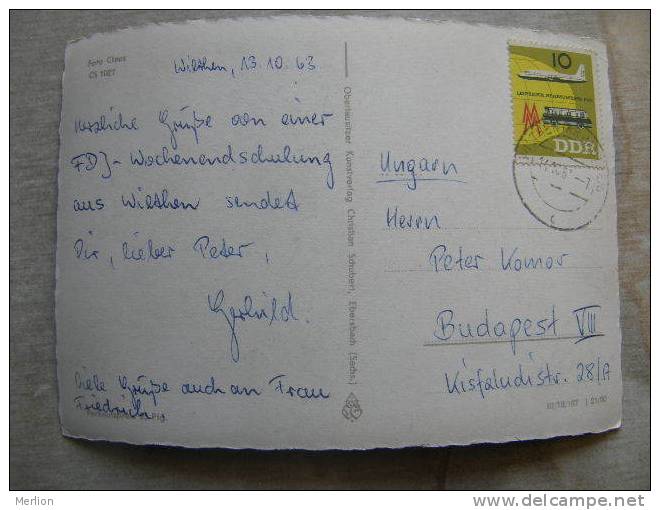 Foto Claus
CS 1027
Wilthen, 13.10.63
Herzliche Grüße von einer
FDJ-Wochenendschulung
aus Wilthen sendet
Dir, lieber Peter,
Gerhild.
Viele Grüße auch an Frau
Friedrich
Oberlausitzer Kunstverlag Christian Schubert, Ebersbach (Sachs.)
10
DDR
Ungarn
Herrn
Peter Komor
Budapest VIII
Kisfaludistr. 28/A
Merlion
www.delcampe.net